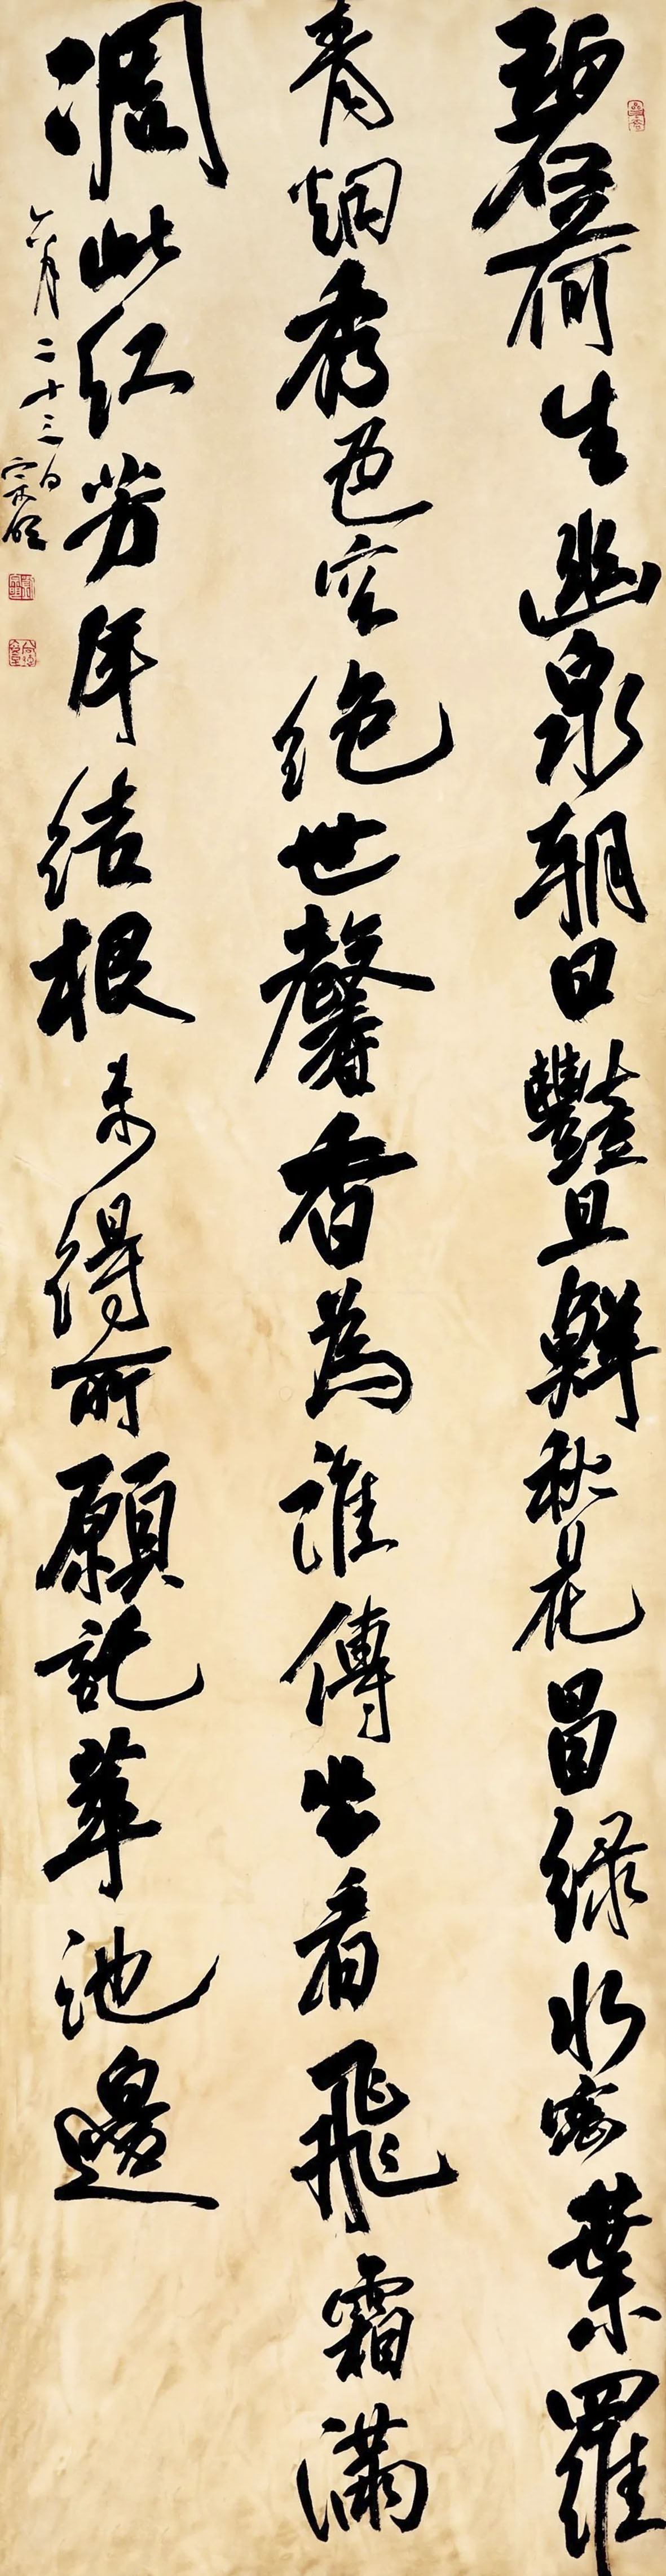 碧荷生幽泉朝日豔且鮮秋花冒綠水密葉羅
青烟秀色空絕世馨香為誰傳坐看飛霜滿
凋此紅芳年結根未得所願託華池邊
六月二十三日宗